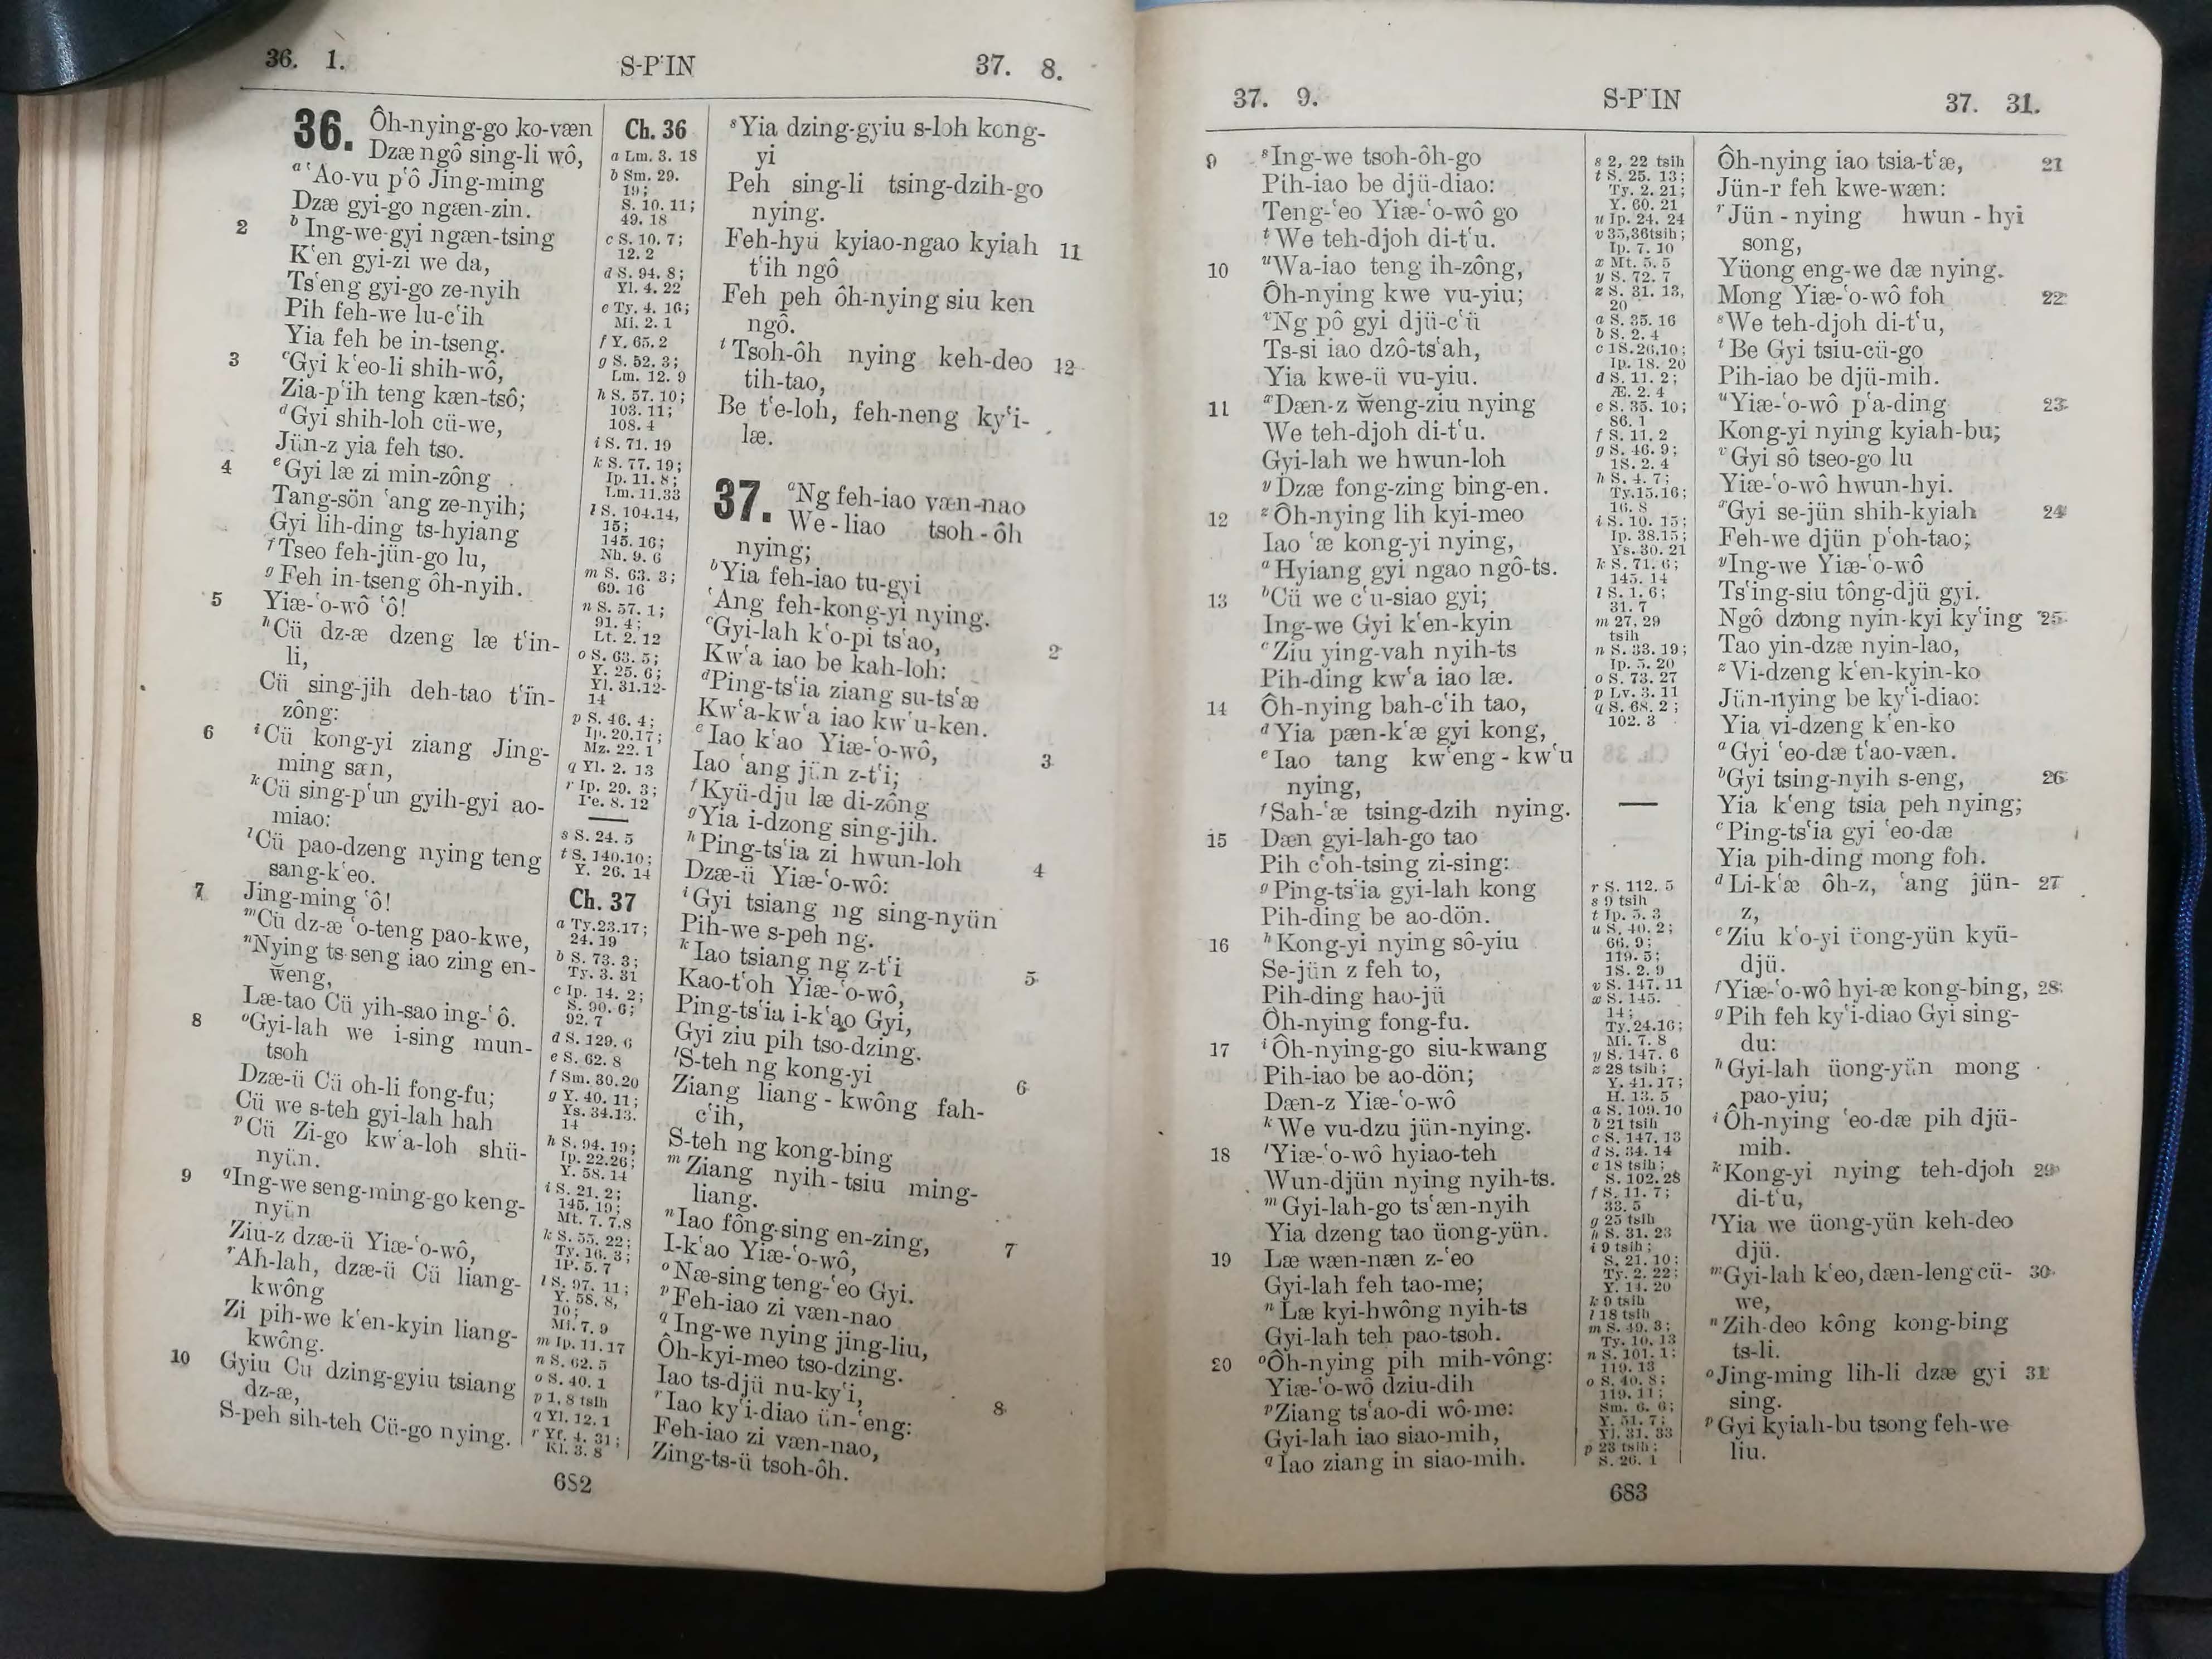 36. 1. S-P'IN 37. 8.
36. Ôh-nying-go ko-væn
Dzæ ngô sing-li wô,
a 'Ao-vu p'ô Jing-ming
Dzæ gyi-go ngæn-zin.
2 b Ing-we-gyi ngæn-tsing
K'en gyi-zi we da,
Ts'eng gyi-go ze-nyih
Pih feh-we lu-c'ih
Yia feh be in-tseng.
3 c Gyi k'eo-li shih-wô,
Zia-p'ih teng kæn-tsô;
d Gyi shih-loh cü-we,
Jün-z yia feh tso.
4 e Gyi læ zi min-zông
Tang-sön 'ang ze-nyih;
Gyi lih-ding ts-hyiang
f Tseo feh-jün-go lu,
g Feh in-tseng ôh-nyih.
5 Yiæ-'o-wô 'ô!
h Cü dz-æ dzeng læ t'in-
li,
Cü sing-jih deh-tao t'in-
zông:
6 i Cü kong-yi ziang Jing-
ming sæn,
k Cü sing-p'un gyih-gyi ao-
miao:
l Cü pao-dzeng nying teng
sang-k'eo.
7 Jing-ming 'ô!
m Cü dz-æ 'o-teng pao-kwe,
n Nying ts-seng iao zing en-
weng,
Læ-tao Cü yih-sao ing-'ô.
8 o Gyi-lah we i-sing mun-
tsoh
Dzæ-ü Cü oh-li fong-fu;
Cü we s-teh gyi-lah hah
p Cü Zi-go kw'a-loh shü-
nyün.
9 q Ing-we seng-ming-go keng-
nyün
Ziu-z dzæ-ü Yiæ-'o-wô,
r Ah-lah, dzæ-ü Cü liang-
kwông
Zi pih-we k'en-kyin liang-
kwông.
10 Gyiu Cü dzing-gyiu tsiang
dz-æ,
S-peh sih-teh Cü-go nying.
Ch. 36
a Lm. 3. 18
b Sm. 29.
19;
S. 10. 11;
49. 18
c S. 10. 7;
12. 2
d S. 94. 8;
Yl. 4. 22
e Ty. 4. 16;
Mi. 2. 1
f Y. 65. 2
g S. 52. 3;
Lm. 12. 9
h S. 57. 10;
103. 11;
108. 4
i S. 71. 19
k S. 77. 19;
Ip. 11. 8;
Lm. 11.33
l S. 104.14,
15;
145. 16;
Nh. 9. 6
m S. 63. 3;
69. 16
n S. 57. 1;
91. 4;
Lt. 2. 12
o S. 63. 5;
Y. 25. 6;
Yl. 31.12-
14
p S. 46. 4;
Ip. 20.17;
Mz. 22. 1
q Yl. 2. 13
r Ip. 29. 3;
Pe. 8. 12
s S. 24. 5
t S. 140.10;
Y. 26. 14
Ch. 37
a Ty.23.17;
24. 19
b S. 73. 3;
Ty. 3. 31
c Ip. 14. 2;
S. 90. 6;
92. 7
d S. 129. 6
e S. 62. 8
f Sm. 30.20
g Y. 40. 11;
Ys. 34.13.
14
h S. 94. 19;
Ip. 22.26;
Y. 58. 14
i S. 21. 2;
145. 19;
Mt. 7. 7,8
k S. 55. 22;
Ty. 16. 3;
1P. 5. 7
l S. 97. 11;
Y. 58. 8,
10;
Mi. 7. 9
m Ip. 11.17
n S. 62. 5
o S. 40. 1
p 1, 8 tsih
q Yl. 12. 1
r Yf. 4. 31;
Kl. 3. 8
s Yia dzing-gyiu s-loh kong-
yi
Peh sing-li tsing-dzih-go
nying.
Feh-hyü kyiao-ngao kyiah 11
t'ih ngô
Feh peh ôh-nying siu ken
ngô.
t Tsoh-ôh nying keh-deo 12
tih-tao,
Be t'e-loh, feh-neng ky'i-
læ.
37. a Ng feh-iao væn-nao
We-liao tsoh-ôh
nying;
b Yia feh-iao tu-gyi
'Ang feh-kong-yi nying.
c Gyi-lah k'o-pi ts'ao, 2
Kw'a iao be kah-loh:
d Ping-ts'ia ziang su-ts'æ
Kw'a-kw'a iao kw'u-ken.
e Iao k'ao Yiæ-'o-wô, 3
Iao 'ang jün z-t'i;
f Kyü-dju læ di-zông
g Yia i-dzong sing-jih.
h Ping-ts'ia zi hwun-loh 4
Dzæ-ü Yiæ-'o-wô:
i Gyi tsiang ng sing-nyün
Pih-we s-peh ng.
k Iao tsiang ng z-t'i 5
Kao-t'oh Yiæ-'o-wô,
Ping-ts'ia i-k'ao Gyi,
Gyi ziu pih tso-dzing.
l S-teh ng kong-yi 6
Ziang liang-kwông fah-
c'ih,
S-teh ng kong-bing
m Ziang nyih-tsiu ming-
liang.
n Iao fông-sing en-zing, 7
I-k'ao Yiæ-'o-wô,
o Næ-sing teng-'eo Gyi.
p Feh-iao zi væn-nao
q Ing-we nying jing-liu,
Ôh-kyi-meo tso-dzing.
Iao ts-djü nu-ky'i, 8
r Iao ky'i-diao ün-'eng:
Feh-iao zi væn-nao,
Zing-ts-ü tsoh-ôh.
682
37. 9. S-P'IN 37. 31.
9 s Ing-we tsoh-ôh-go
Pih-iao be djü-diao:
Teng-'eo Yiæ-'o-wô go
t We teh-djoh di-t'u.
10 u Wa-iao teng ih-zông,
Ôh-nying kwe vu-yiu;
v Ng pô gyi djü-c'ü
Ts-si iao dzô-ts'ah,
Yia kwe-ü vu-yiu.
11 x Dæn-z weng-ziu nying
We teh-djoh di-t'u.
Gyi-lah we hwun-loh
y Dzæ fong-zing bing-en.
12 z Ôh-nying lih kyi-meo
Iao 'æ kong-yi nying,
a Hyiang gyi ngao ngô-ts.
13 b Cü we c'u-siao gyi;
Ing-we Gyi k'en-kyin
c Ziu ying-vah nyih-ts
Pih-ding kw'a iao læ.
14 Ôh-nying bah-c'ih tao,
d Yia pæn-k'æ gyi kong,
e Iao tang kw'eng-kw'u
nying,
f Sah-'æ tsing-dzih nying.
15 Dæn gyi-lah-go tao
Pih c'oh-tsing zi-sing:
g Ping-ts'ia gyi-lah kong
Pih-ding be ao-dön.
16 h Kong-yi nying sô-yiu
Se-jün z feh to,
Pih-ding hao-jü
Ôh-nying fong-fu.
17 i Ôh-nying-go siu-kwang
Pih-iao be ao-dön;
Dæn-z Yiæ-'o-wô
k We vu-dzu jün-nying.
18 l Yiæ-'o-wô hyiao-teh
Wun-djün nying nyih-ts.
m Gyi-lah-go ts'æn-nyih
Yia dzeng tao üong-yün.
19 Læ wæn-næn z-'eo
Gyi-lah feh tao-me;
n Læ kyi-hwông nyih-ts
Gyi-lah teh pao-tsoh.
20 o Ôh-nying pih mih-vông:
Yiæ-'o-wô dziu-dih
p Ziang ts'ao-di wô-me:
Gyi-lah iao siao-mih,
q Iao ziang in siao-mih.
s 2, 22 tsih
t S. 25. 13;
Ty. 2. 21;
Y. 60. 21
u Ip. 24. 24
v 35,36 tsih;
Ip. 7. 10
x Mt. 5. 5
y S. 72. 7
z S. 31. 13,
20
a S. 35. 16
b S. 2. 4
c 1S.26.10;
Ip. 18. 20
d S. 11. 2;
Æ. 2. 4
e S. 35. 10;
86. 1
f S. 11. 2
g S. 46. 9;
1S. 2. 4
h S. 4. 7;
Ty.15.16;
16. 8
i S. 10. 15;
Ip. 38.15;
Ys. 30. 21
k S. 71. 6;
145. 14
l S. 1. 6;
31. 7
m 27, 29
tsih
n S. 33. 19;
Ip. 5. 20
o S. 73. 27
p Lv. 3. 11
q S. 68. 2;
102. 3
r S. 112. 5
s 9 tsih
t Ip. 5. 3
u S. 40. 2;
66. 9;
119. 5;
1S. 2. 9
v S. 147. 11
w S. 145.
14;
Ty.24.16;
Mi. 7. 8
y S. 147. 6
z 28 tsih;
Y. 41. 17;
H. 13. 5
a S. 109. 10
b 21 tsih
c S. 147. 13
d S. 34. 14
e 18 tsih;
S. 102. 28
f S. 11. 7;
33. 5
g 25 tsih
h S. 31. 23
i 9 tsih;
S. 21. 10;
Ty. 2. 22;
Y. 14. 20
k 9 tsih
l 18 tsih
m S. 49. 3;
Ty. 10. 13
n S. 101. 1;
119. 13
o S. 40. 8;
119. 11;
Sm. 6. 6;
Y. 51. 7;
Yl. 31. 33
p 23 tsih;
S. 26. 1
Ôh-nying iao tsia-t'æ, 21
Jün-r feh kwe-wæn:
r Jün-nying hwun-hyi
song,
Yüong eng-we dæ nying.
Mong Yiæ-'o-wô foh 22
s We teh-djoh di-t'u,
t Be Gyi tsiu-cü-go
Pih-iao be djü-mih.
u Yiæ-'o-wô p'a-ding 23
Kong-yi nying kyiah-bu;
v Gyi sô tseo-go lu
Yiæ-'o-wô hwun-hyi.
x Gyi se-jün shih-kyiah 24
Feh-we djün p'oh-tao;
y Ing-we Yiæ-'o-wô
Ts'ing-siu tông-djü gyi.
Ngô dzong nyin-kyi ky'ing 25
Tao yin-dzæ nyin-lao,
z Vi-dzeng k'en-kyin-ko
Jün-nying be ky'i-diao:
Yia vi-dzeng k'en-ko
a Gyi 'eo-dæ t'ao-væn.
b Gyi tsing-nyih s-eng, 26
Yia k'eng tsia peh nying;
c Ping-ts'ia gyi 'eo-dæ
Yia pih-ding mong foh.
d Li-k'æ ôh-z, 'ang jün- 27
z,
e Ziu k'o-yi üong-yün kyü-
djü.
f Yiæ-'o-wô hyi-æ kong-bing, 28
g Pih feh ky'i-diao Gyi sing-
du:
h Gyi-lah üong-yün mong
pao-yiu;
i Ôh-nying 'eo-dæ pih djü-
mih.
k Kong-yi nying teh-djoh 29
di-t'u,
l Yia we üong-yün keh-deo
djü.
m Gyi-lah k'eo, dæn-leng cü- 30
we,
n Zih-deo kông kong-bing
ts-li.
o Jing-ming lih-li dzæ gyi 31
sing.
p Gyi kyiah-bu tsong feh-we
liu.
683